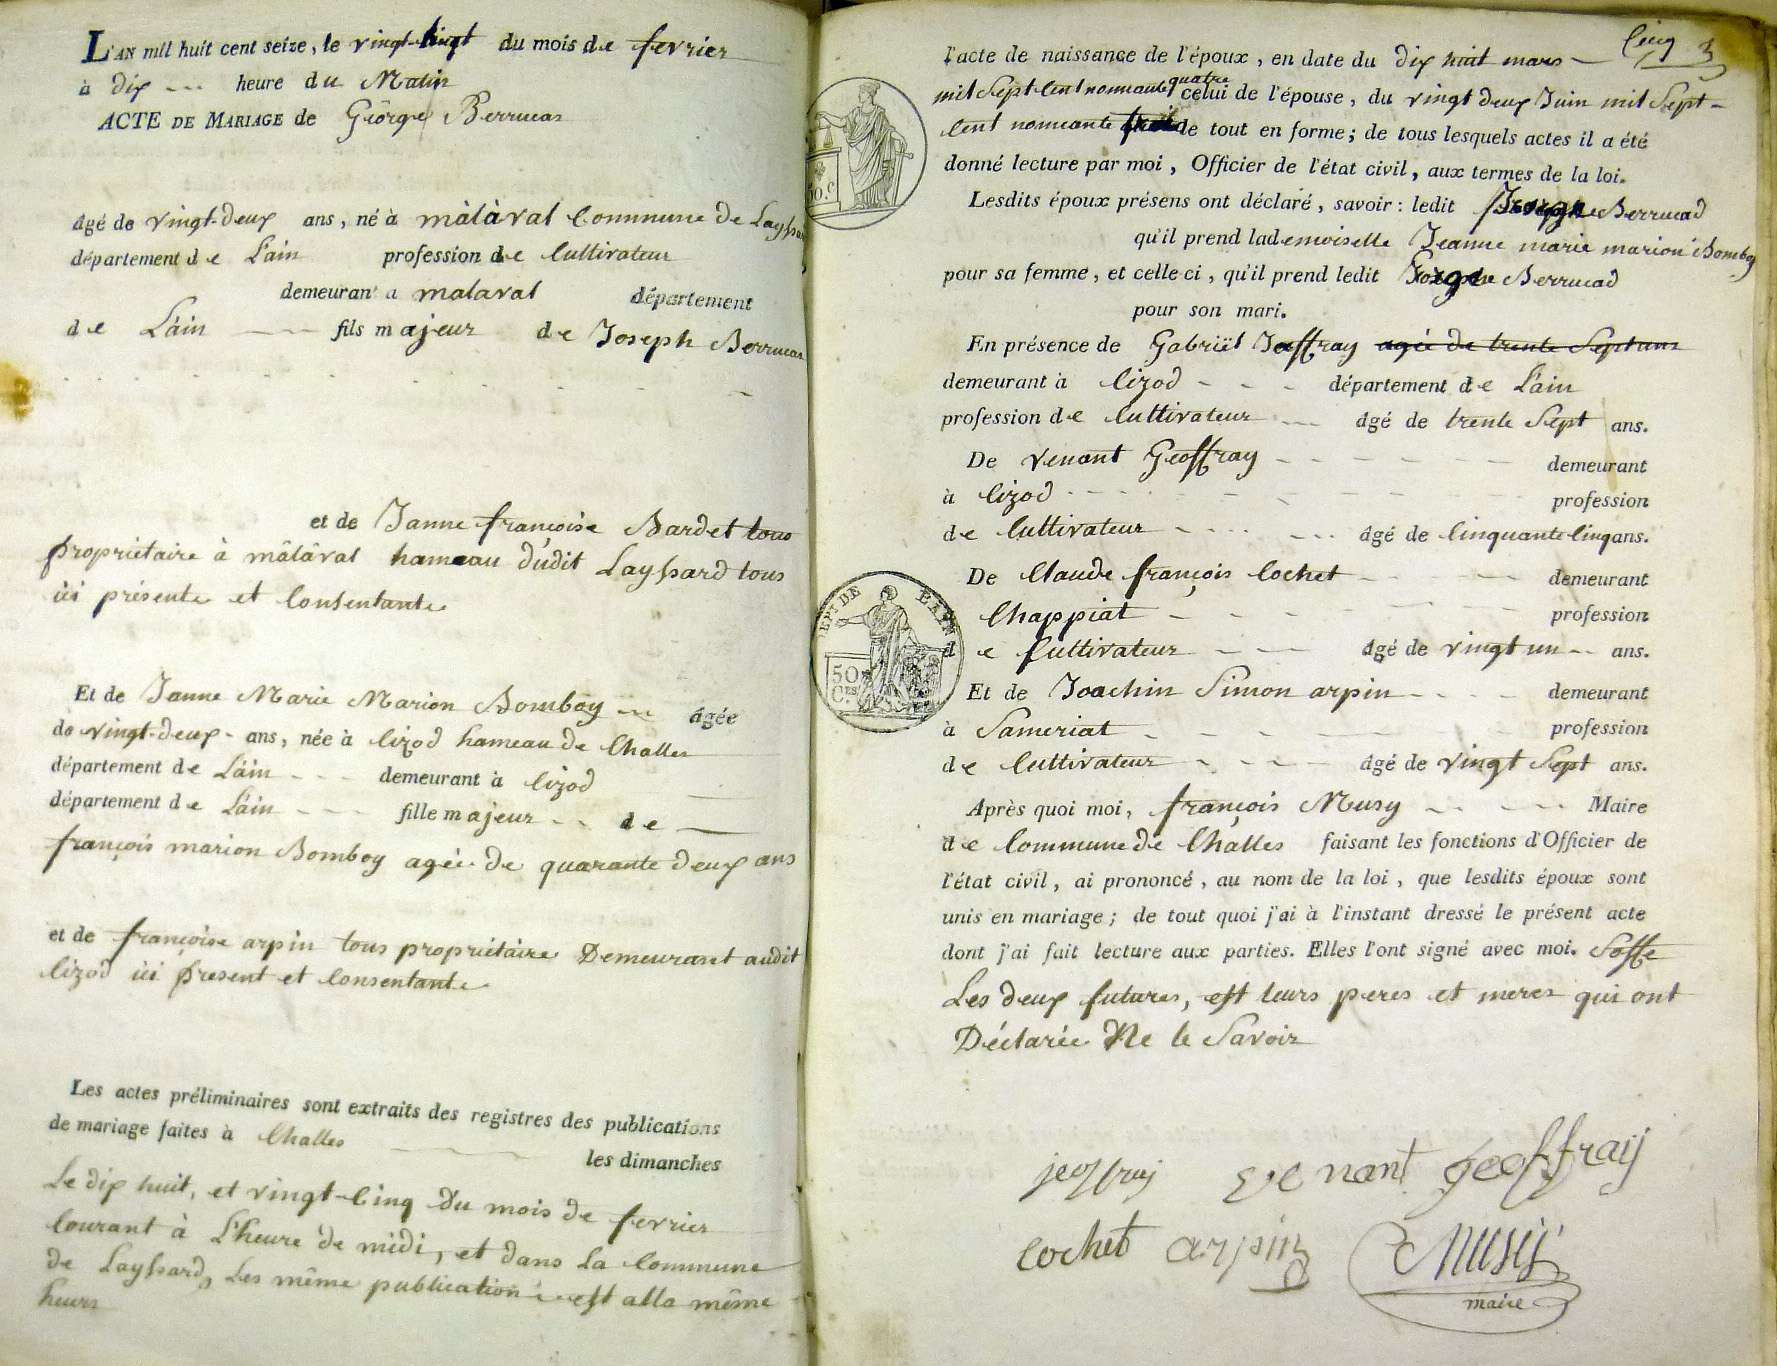 L'AN mil huit cent seize, le vingt huit du mois de fevrier
à dix heure du Matin
ACTE DE MARIAGE de Géorge Berrucas
âgé de vingt-deux ans, né à màlàval Commune de Layssar
département de L'ain profession de Cultivateur
demeurant a malaval département
de L'ain fils majeur de Joseph Berrucas
et de Janne françoise Bardet tous
propriétaire à mâlâval hameau dudit Layssard tous
ici présente et Consentante
Et de Janne Marie Marion Bomboy âgée
de vingt-deux ans, née à Cizod hameau de Challes
département de L'ain demeurant à Cizod
département de L'ain fille majeur de
françois marion Bomboy agée de quarante deux ans
et de françoise arpin tous propriétaire Demeurant audit
Cizod ici present et Consentante
Les actes préliminaires sont extraits des registres des publications
de mariage faites à Challes les dimanches
Le dix huit, et vingt-Cinq Du mois de fevrier
Courant à L'heure de midi, et dans La Commune
de Layssard, Les même publication est alla même
heure
Cinq 3
l'acte de naissance de l'époux, en date du dix huit mars
mil Sept Cent nonnante quatre celui de l'épouse, du vingt deux Juin mil Sept-
Cent nonnante de tout en forme; de tous lesquels actes il a été
donné lecture par moi, Officier de l'état civil, aux termes de la loi.
Lesdits époux présens ont déclaré, savoir: ledit Berrucad
qu'il prend lademoiselle Jeanne marie marion Bomboy
pour sa femme, et celle ci, qu'il prend ledit Berrucad
pour son mari.
En présence de Gabriël Jeffray agée de trente Sept ans
demeurant à Cizod département de L'ain
profession de Cultivateur âgé de trente Sept ans.
De venant Geoffray demeurant
à Cizod profession
de Cultivateur âgé de Cinquante Cinq ans.
De Claude françois Cochet demeurant
Chappiat profession
de Cultivateur âgé de vingt un ans.
Et de Joachin Simon arpin demeurant
à Sameriat profession
de Cultivateur âgé de vingt Sept ans.
Après quoi moi, françois Musy Maire
de Commune de Challes faisant les fonctions d'Officier de
l'état civil, ai prononcé, au nom de la loi, que lesdits époux sont
unis en mariage; de tout quoi j'ai à l'instant dressé le présent acte
dont j'ai fait lecture aux parties. Elles l'ont signé avec moi.
Les deux futures, est leurs peres et meres qui ont
Déclarée Ne le Savoir
jeoffray venant Geoffraÿ
Cochet arpin Musÿ
maire
50 c.
DEPt DE L'AIN
50
C.es